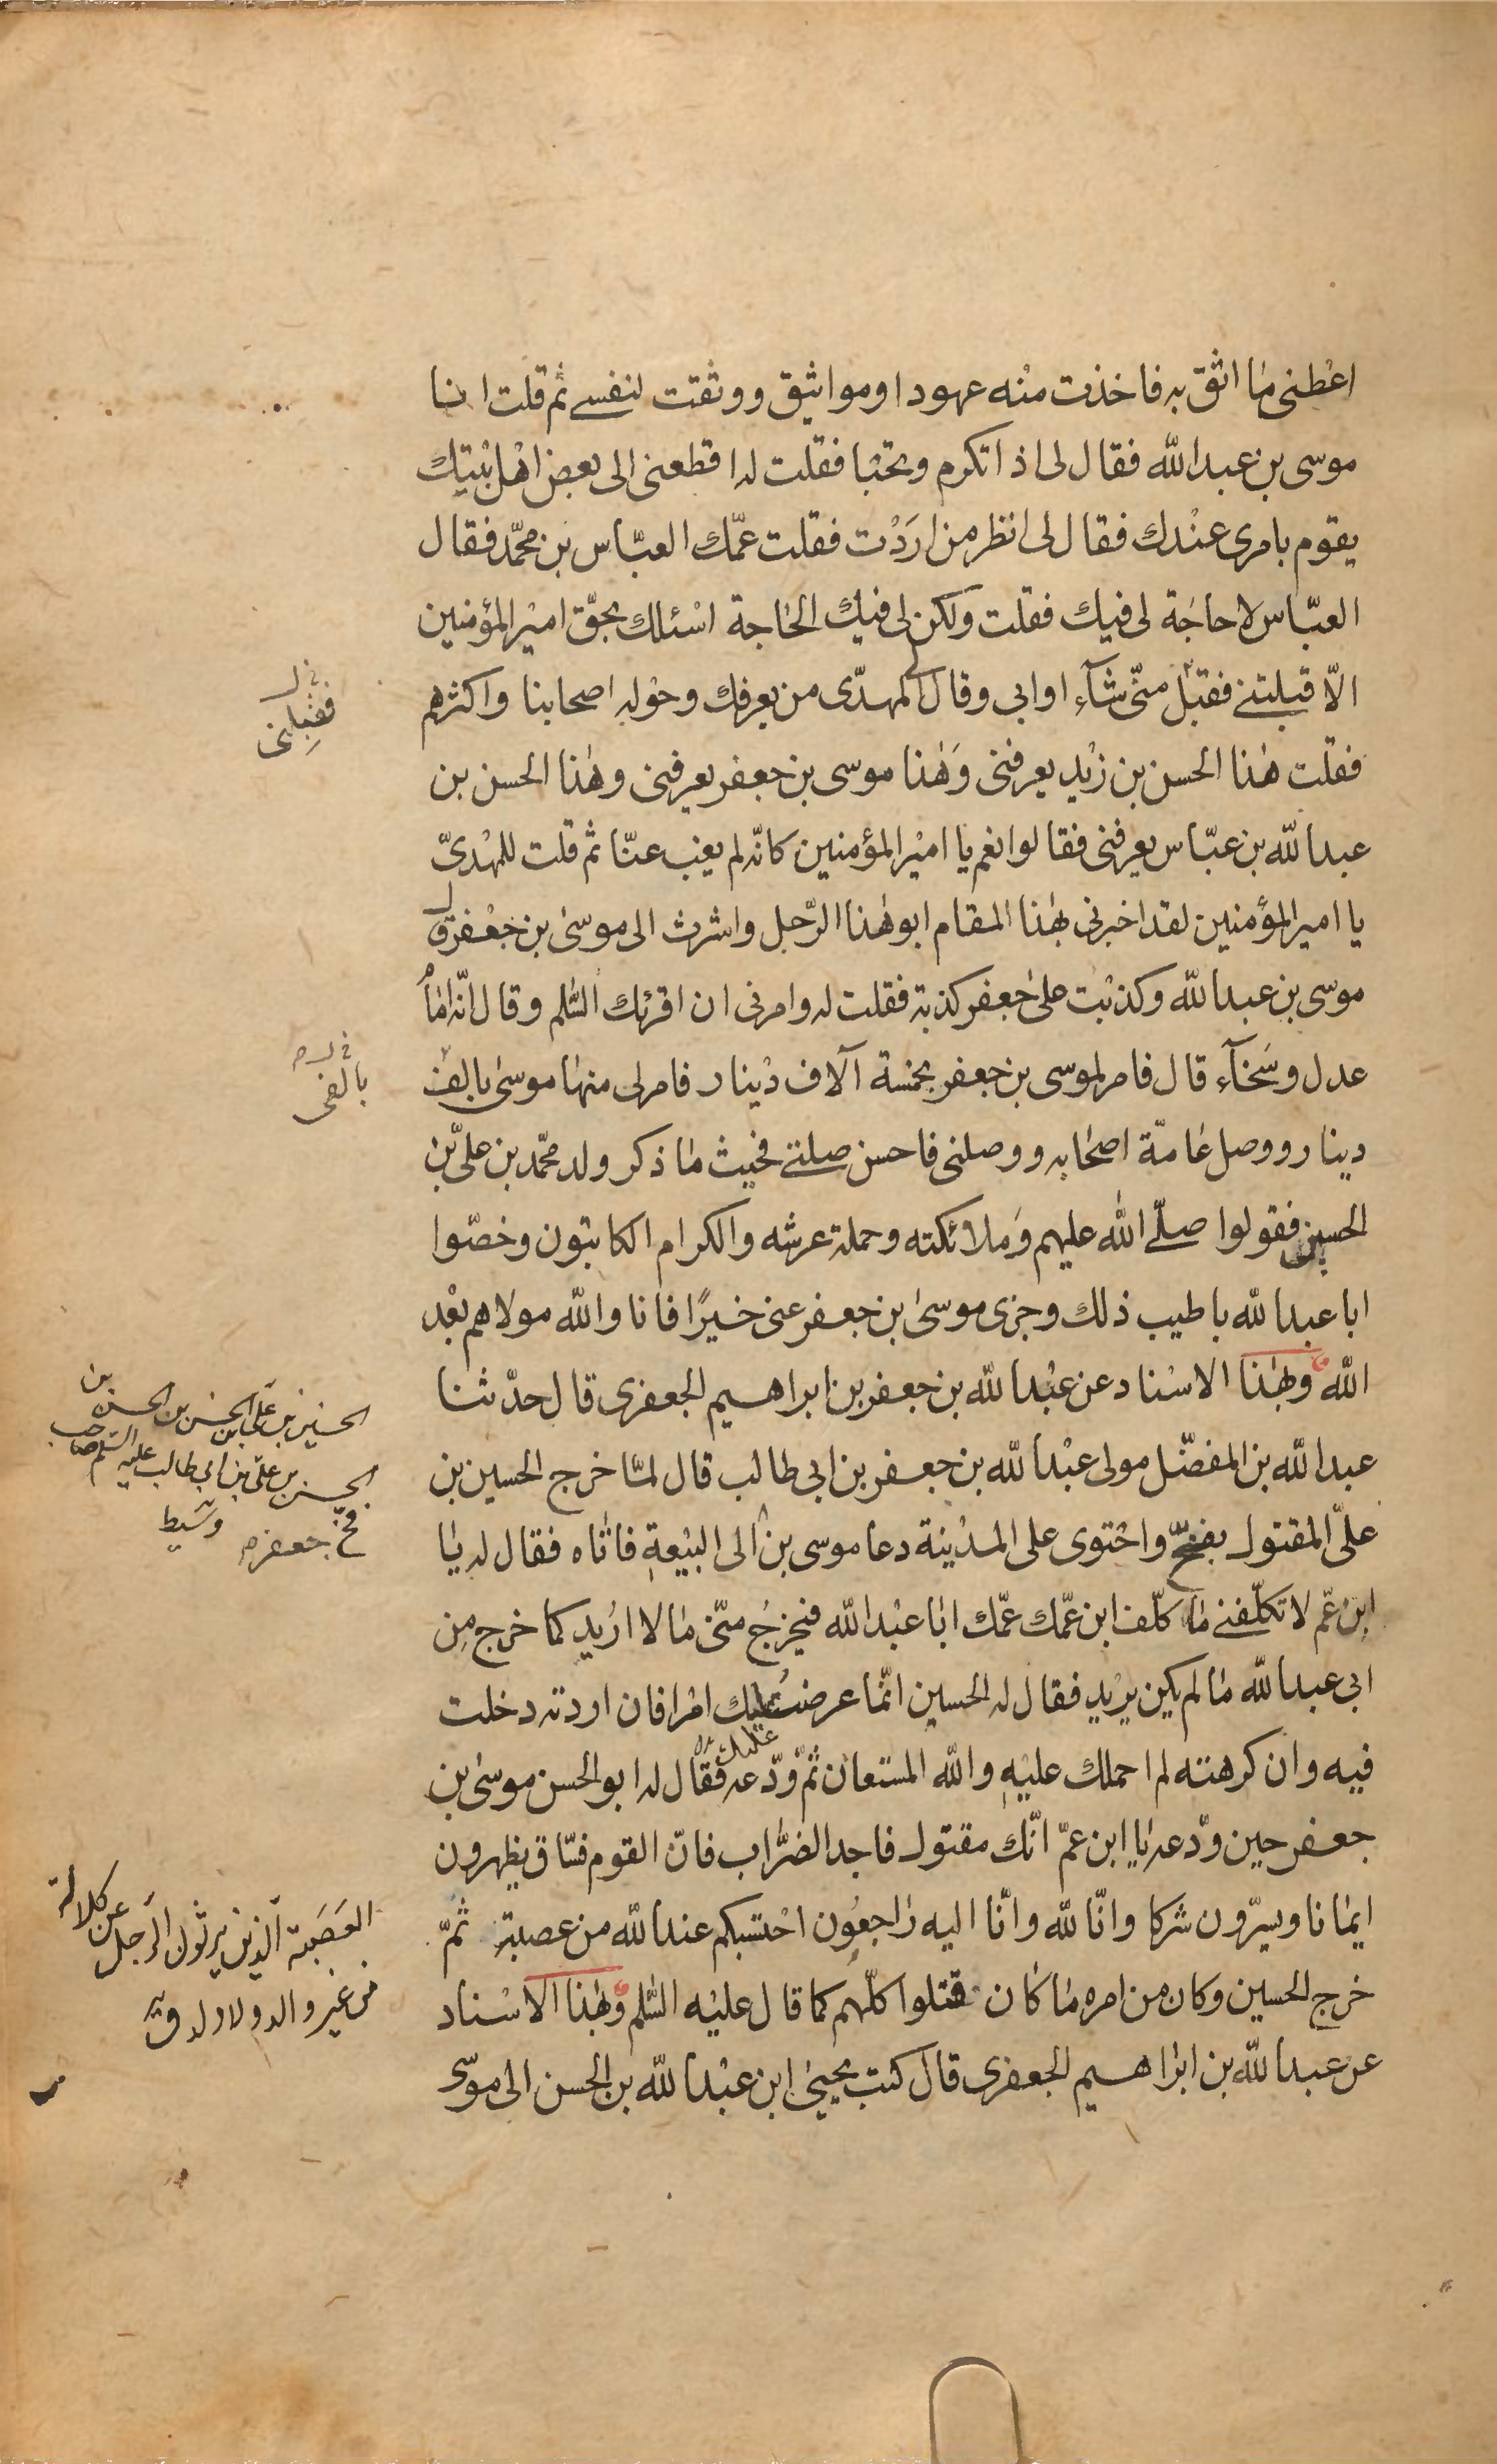 اعطنى ما اثق به فاخذت منه عهودا ومواثيق ووثقت لنفسے ثم قلت انا
موسى بن عبد الله فقال لى اذا تكرم وتحبا فقلت له اقطعنى الى بعض اهل بيتك
يقوم بامرى عندك فقال لى انظر من اردت فقلت عمّك العبّاس بن محمّد فقال
العبّاس لا حاجة لى فيك فقلت ولكن لى فيك الحاجة اسئلك بحقّ امير المؤمنين
الّا قبلتنے فقبل منّى شآء او ابى وقال لى المهدّى من يعرفك وحوله اصحابنا واكثرهم
فقلت هذا الحسن بن زيد يعرفنى وهذا موسى بن جعفر يعرفنى وهذا الحسن بن
عبد الله بن عبّاس يعرفنى فقالوا نعم يا امير المؤمنين كانّه لم يغب عنّا ثم قلت للمهدىّ
يا امير المؤمنين لقد اخبرنى بهذا المقام ابو هذا الرّجل واشرت الى موسى بن جعفر ق
موسى بن عبد الله وكذبت على جعفر كذبة فقلت له وامرنى ان اقرئك السّلم وقال انّه امامُ
عدل وسخآء قال فامر لموسى بن جعفر بخمسة آلاف دينار فامر لى منها موسى بالف
دينار ووصل عامّة اصحابه ووصلنى فاحسن صلتے فحيث ما ذكر ولد محمّد بن علىّ بن
الحسين فقولوا صلّے الله عليهم وملائكته وحملة عرشه والكرام الكاتبون وخصّوا
ابا عبد الله باطيب ذلك وجزى موسى بن جعفر عنى خيرًا فانا والله مولاهم بعد
الله وبهذا الاسناد عن عبد الله بن جعفر بن ابراهيم الجعفرى قال حدّثنا
عبد الله بن المفضّل مولى عبد الله بن جعفر بن ابى طالب قال لمّا خرج الحسين بن
علىّ المقتول بفخّ واحتوى على المدينة دعا موسى بن الى البيعة فاتاه فقال له يا
ابن عمّ لا تكلّفنے ما كلّف ابن عمّك عمّك ابا عبد الله فيخرج منّى ما لا اريد كما خرج من
ابى عبد الله ما لم يكن يريد فقال له الحسين انّما عرضت عليك امرا فان اردته دخلت
فيه وان كرهته لم احملك عليه والله المستعان ثمّ ودّعه فقال له ابو الحسن موسى بن
جعفر حين ودّعه يا ابن عمّ انّك مقتول فاجد الضّراب فانّ القوم فسّاق يظهرون
ايمانا ويسرّون شركا وانّا لله وانّا اليه راجعون احتسبكم عند الله من عصبة ثمّ
خرج الحسين وكان من امره ما كان قتلوا كلّهم كما قال عليه السّلم وبهذا الاسناد
عن عبد الله بن ابراهيم الجعفرى قال كتب يحيى ابن عبد الله بن الحسن الى موسى
فقبلنى
بالفى
الحسين بن علىّ بن الحسن بن الحسن بن
الحسن بن علىّ بن ابى طالب عليه السّلم صاحب
فخّ جعفر
عليك
العصبة الّذين يرثون الرّجل عن كلالة
من غير والد ولا ولد ق